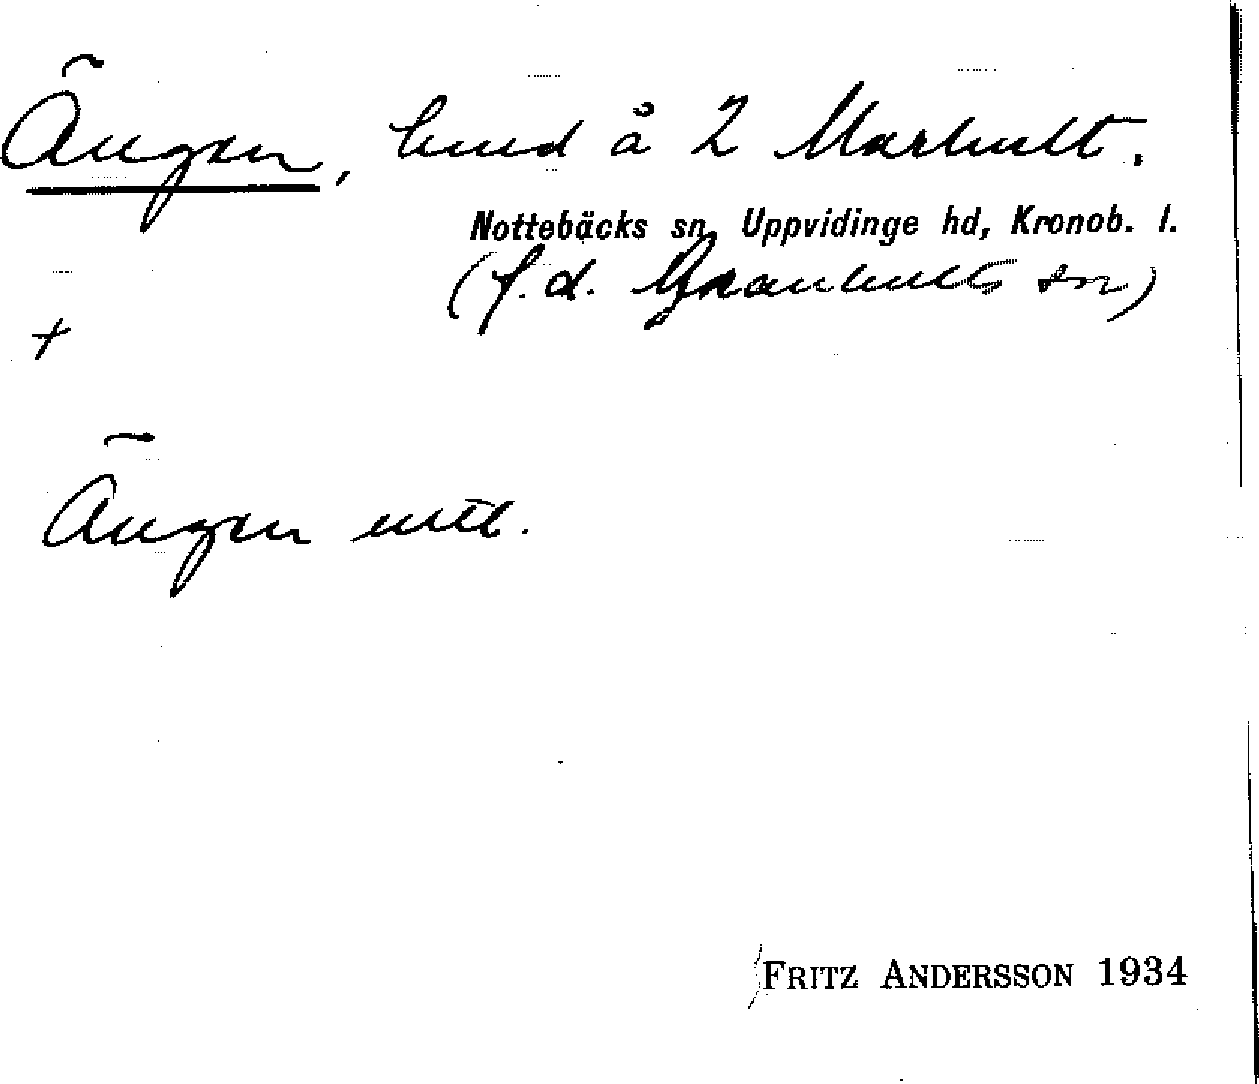 Ängen, lund å 2 Marhult.
Nottebäcks sn, Uppvidinge hd, Kronob. l.
(f.d. Granhults sn)
+
Ängen uttl.
FRITZ ANDERSSON 1934